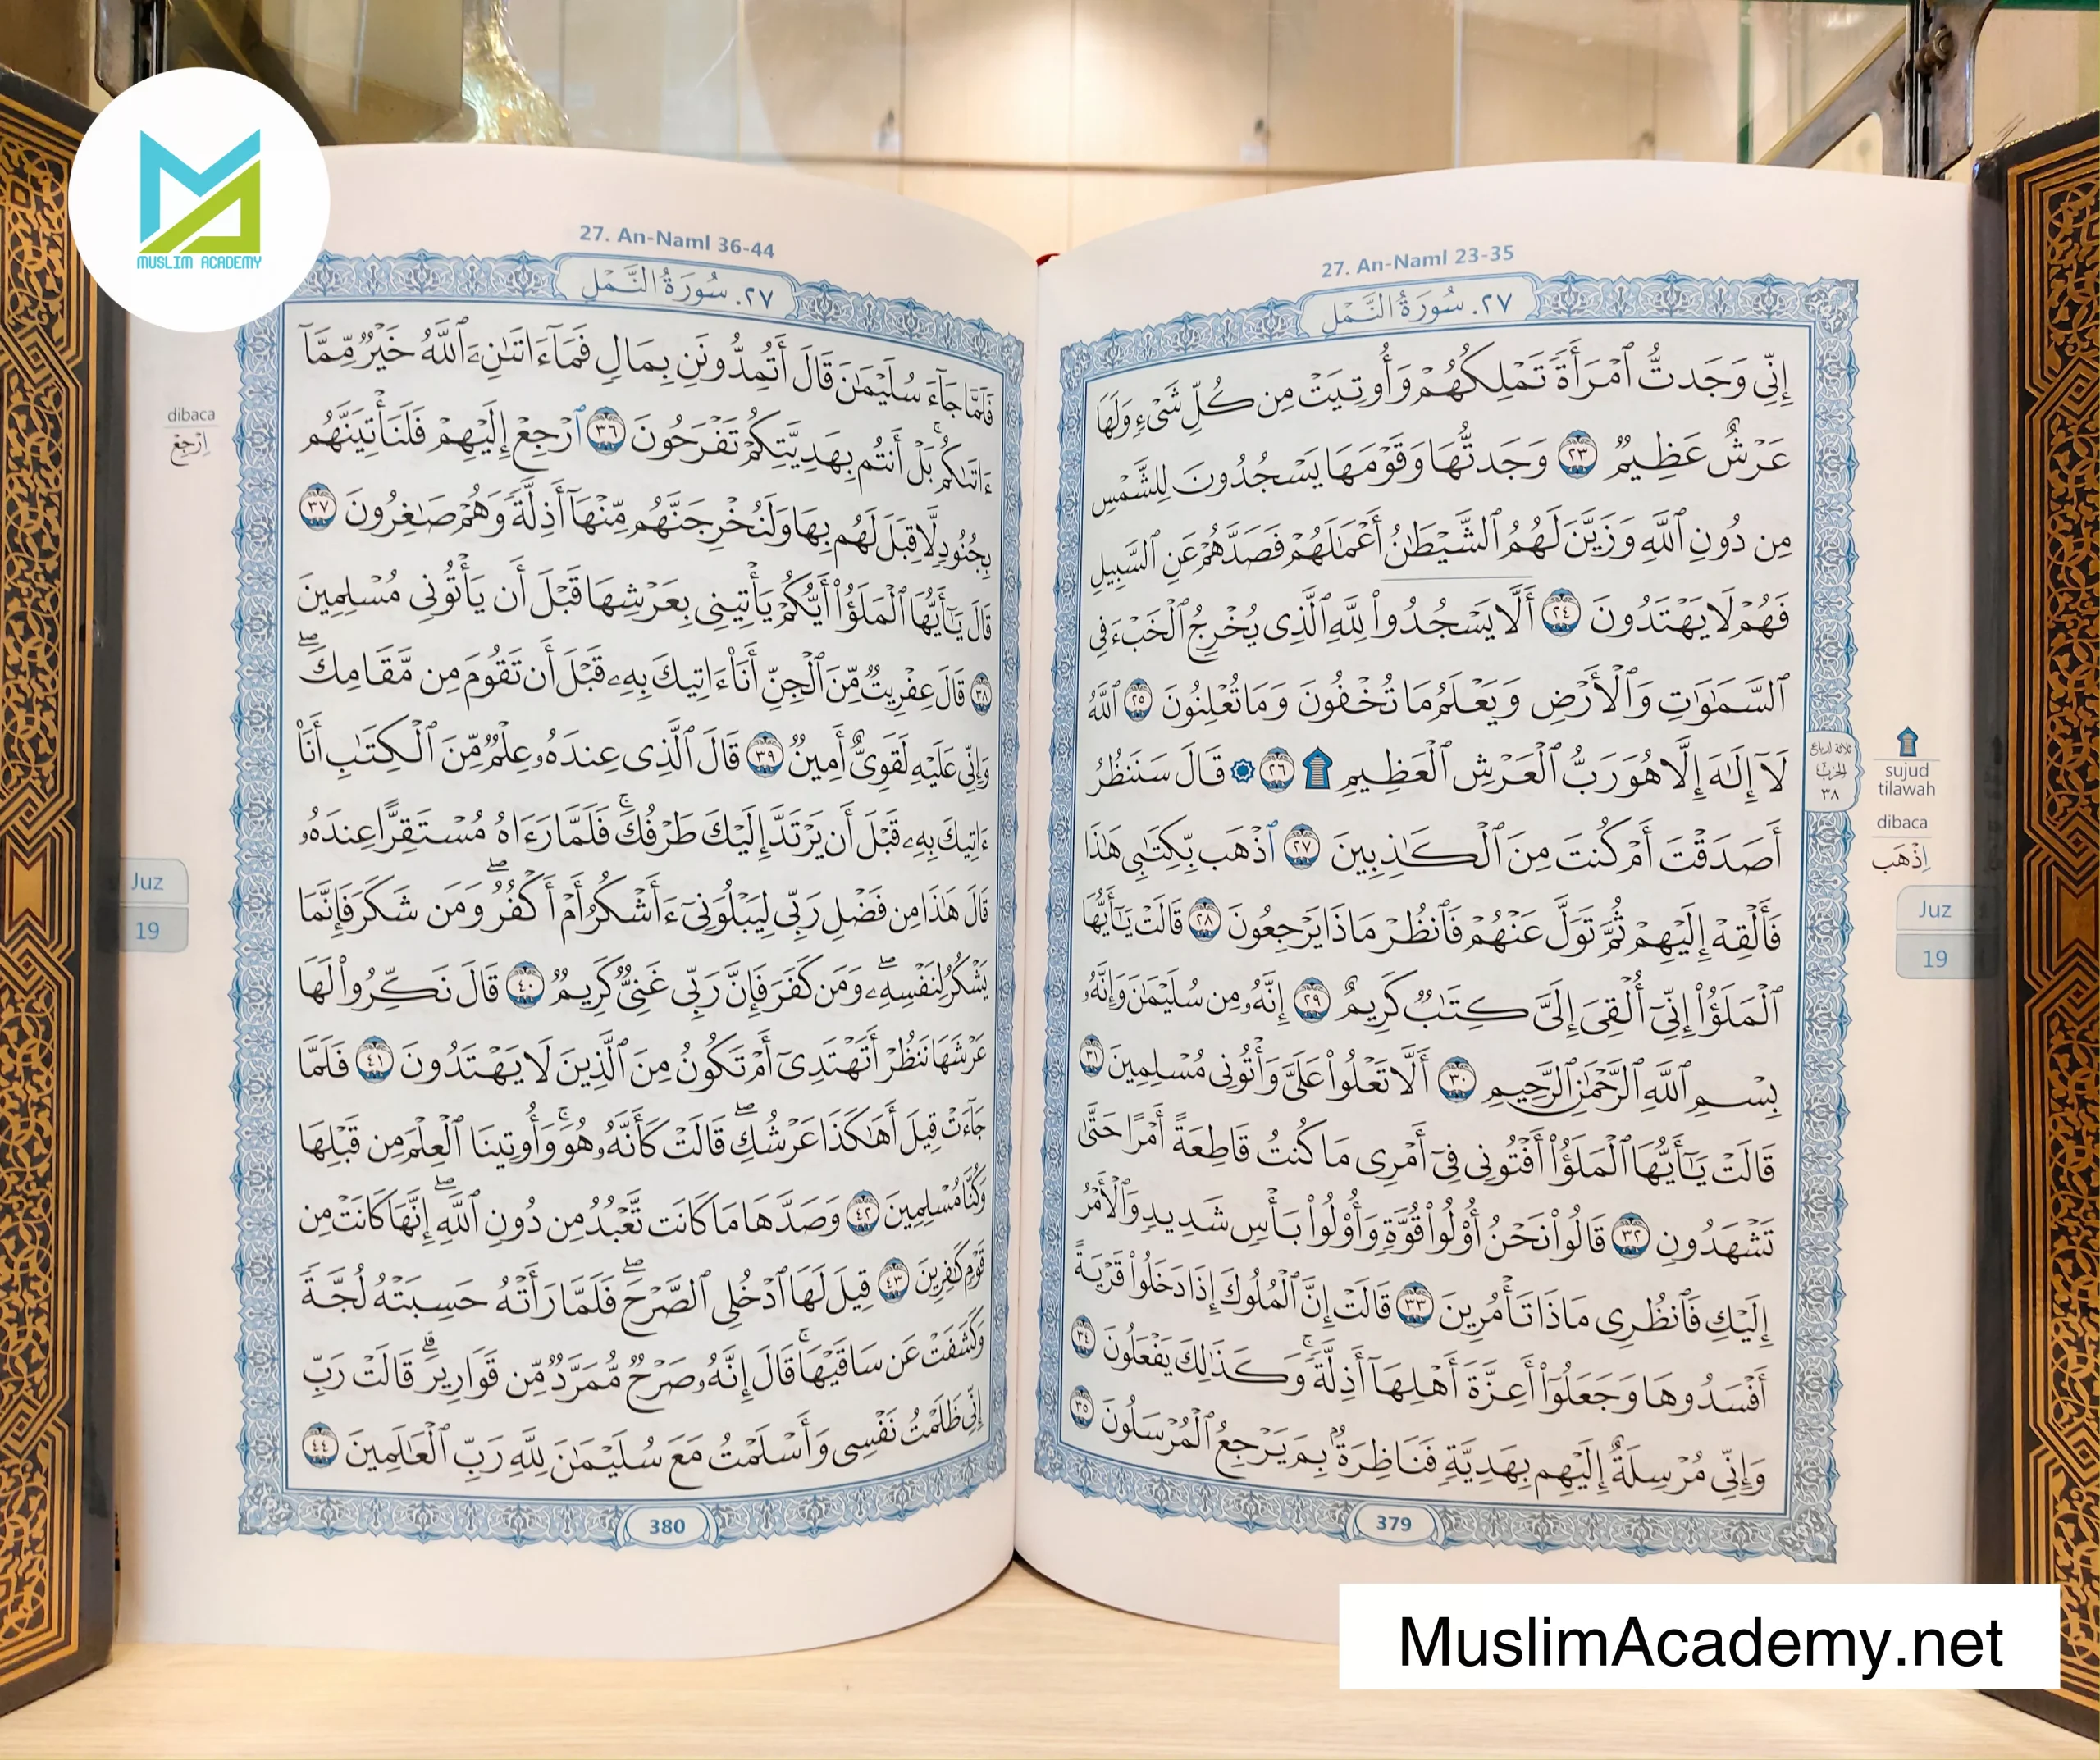 MUSLIM ACADEMY
27. An-Naml 23-35
٢٧. سُورَةُ النَّمْلِ
إِنِّى وَجَدتُّ ٱمْرَأَةً تَمْلِكُهُمْ وَأُوتِيَتْ مِن كُلِّ شَىْءٍ وَلَهَا
عَرْشٌ عَظِيمٌ ٢٣ وَجَدتُّهَا وَقَوْمَهَا يَسْجُدُونَ لِلشَّمْسِ
مِن دُونِ ٱللَّهِ وَزَيَّنَ لَهُمُ ٱلشَّيْطَٰنُ أَعْمَٰلَهُمْ فَصَدَّهُمْ عَنِ ٱلسَّبِيلِ
فَهُمْ لَا يَهْتَدُونَ ٢٤ أَلَّا يَسْجُدُوا۟ لِلَّهِ ٱلَّذِى يُخْرِجُ ٱلْخَبْءَ فِى
ٱلسَّمَٰوَٰتِ وَٱلْأَرْضِ وَيَعْلَمُ مَا تُخْفُونَ وَمَا تُعْلِنُونَ ٢٥ ٱللَّهُ
لَآ إِلَٰهَ إِلَّا هُوَ رَبُّ ٱلْعَرْشِ ٱلْعَظِيمِ ۩ ٢٦ ۞ قَالَ سَنَنظُرُ
أَصَدَقْتَ أَمْ كُنتَ مِنَ ٱلْكَٰذِبِينَ ٢٧ ٱذْهَب بِّكِتَٰبِى هَٰذَا
فَأَلْقِهْ إِلَيْهِمْ ثُمَّ تَوَلَّ عَنْهُمْ فَٱنظُرْ مَاذَا يَرْجِعُونَ ٢٨ قَالَتْ يَٰٓأَيُّهَا
ٱلْمَلَؤُا۟ إِنِّىٓ أُلْقِىَ إِلَىَّ كِتَٰبٌ كَرِيمٌ ٢٩ إِنَّهُۥ مِن سُلَيْمَٰنَ وَإِنَّهُۥ
بِسْمِ ٱللَّهِ ٱلرَّحْمَٰنِ ٱلرَّحِيمِ ٣٠ أَلَّا تَعْلُوا۟ عَلَىَّ وَأْتُونِى مُسْلِمِينَ ٣١
قَالَتْ يَٰٓأَيُّهَا ٱلْمَلَؤُا۟ أَفْتُونِى فِىٓ أَمْرِى مَا كُنتُ قَاطِعَةً أَمْرًا حَتَّىٰ
تَشْهَدُونِ ٣٢ قَالُوا۟ نَحْنُ أُو۟لُوا۟ قُوَّةٍ وَأُو۟لُوا۟ بَأْسٍ شَدِيدٍ وَٱلْأَمْرُ
إِلَيْكِ فَٱنظُرِى مَاذَا تَأْمُرِينَ ٣٣ قَالَتْ إِنَّ ٱلْمُلُوكَ إِذَا دَخَلُوا۟ قَرْيَةً
أَفْسَدُوهَا وَجَعَلُوٓا۟ أَعِزَّةَ أَهْلِهَآ أَذِلَّةً ۚ وَكَذَٰلِكَ يَفْعَلُونَ ٣٤
وَإِنِّى مُرْسِلَةٌ إِلَيْهِم بِهَدِيَّةٍ فَنَاظِرَةٌۢ بِمَ يَرْجِعُ ٱلْمُرْسَلُونَ ٣٥
ثلاثة ارباع
الحزب
٣٨
sujud
tilawah
dibaca
اِذْهَب
Juz
19
379
27. An-Naml 36-44
٢٧. سُورَةُ النَّمْلِ
فَلَمَّا جَآءَ سُلَيْمَٰنَ قَالَ أَتُمِدُّونَنِ بِمَالٍ فَمَآ ءَاتَىٰنِۦَ ٱللَّهُ خَيْرٌ مِّمَّآ
ءَاتَىٰكُم ۚ بَلْ أَنتُم بِهَدِيَّتِكُمْ تَفْرَحُونَ ٣٦ ٱرْجِعْ إِلَيْهِمْ فَلَنَأْتِيَنَّهُم
بِجُنُودٍ لَّا قِبَلَ لَهُم بِهَا وَلَنُخْرِجَنَّهُم مِّنْهَآ أَذِلَّةً وَهُمْ صَٰغِرُونَ ٣٧
قَالَ يَٰٓأَيُّهَا ٱلْمَلَؤُا۟ أَيُّكُمْ يَأْتِينِى بِعَرْشِهَا قَبْلَ أَن يَأْتُونِى مُسْلِمِينَ
٣٨ قَالَ عِفْرِيتٌ مِّنَ ٱلْجِنِّ أَنَا۠ ءَاتِيكَ بِهِۦ قَبْلَ أَن تَقُومَ مِن مَّقَامِكَ ۖ
وَإِنِّى عَلَيْهِ لَقَوِىٌّ أَمِينٌ ٣٩ قَالَ ٱلَّذِى عِندَهُۥ عِلْمٌ مِّنَ ٱلْكِتَٰبِ أَنَا۠
ءَاتِيكَ بِهِۦ قَبْلَ أَن يَرْتَدَّ إِلَيْكَ طَرْفُكَ ۚ فَلَمَّا رَءَاهُ مُسْتَقِرًّا عِندَهُۥ
قَالَ هَٰذَا مِن فَضْلِ رَبِّى لِيَبْلُوَنِىٓ ءَأَشْكُرُ أَمْ أَكْفُرُ ۖ وَمَن شَكَرَ فَإِنَّمَا
يَشْكُرُ لِنَفْسِهِۦ ۖ وَمَن كَفَرَ فَإِنَّ رَبِّى غَنِىٌّ كَرِيمٌ ٤٠ قَالَ نَكِّرُوا۟ لَهَا
عَرْشَهَا نَنظُرْ أَتَهْتَدِىٓ أَمْ تَكُونُ مِنَ ٱلَّذِينَ لَا يَهْتَدُونَ ٤١ فَلَمَّا
جَآءَتْ قِيلَ أَهَٰكَذَا عَرْشُكِ ۖ قَالَتْ كَأَنَّهُۥ هُوَ ۚ وَأُوتِينَا ٱلْعِلْمَ مِن قَبْلِهَا
وَكُنَّا مُسْلِمِينَ ٤٢ وَصَدَّهَا مَا كَانَت تَّعْبُدُ مِن دُونِ ٱللَّهِ ۖ إِنَّهَا كَانَتْ مِن
قَوْمٍ كَٰفِرِينَ ٤٣ قِيلَ لَهَا ٱدْخُلِى ٱلصَّرْحَ ۖ فَلَمَّا رَأَتْهُ حَسِبَتْهُ لُجَّةً
وَكَشَفَتْ عَن سَاقَيْهَا ۚ قَالَ إِنَّهُۥ صَرْحٌ مُّمَرَّدٌ مِّن قَوَارِيرَ ۗ قَالَتْ رَبِّ
إِنِّى ظَلَمْتُ نَفْسِى وَأَسْلَمْتُ مَعَ سُلَيْمَٰنَ لِلَّهِ رَبِّ ٱلْعَٰلَمِينَ ٤٤
dibaca
اِرْجِعْ
Juz
19
380
MuslimAcademy.net